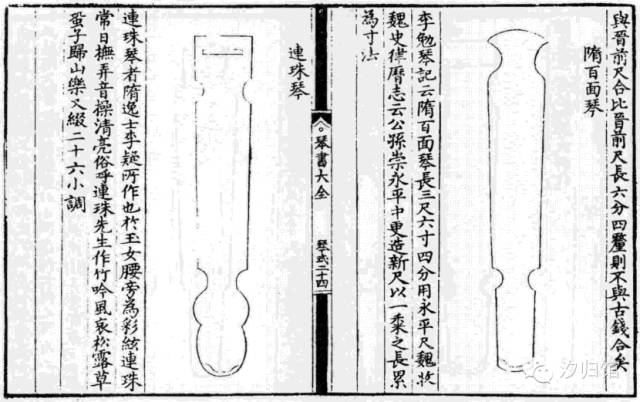 與晉前尺合比晉前尺長六分四釐則不與古錢合矣
隋百面琴
李勉琴記云隋百面琴長三尺六寸四分用永平尺魏收
魏史律曆志云公孫崇永平中更造新尺以一黍之長累
為寸法
琴書大全
琴式二十四
連珠琴
連珠琴者隋逸士李疑所作也於玉女腰旁為彩絃連珠
常日撫弄音操清亮俗呼連珠先生作竹吟風哀松露草
蛩子歸山樂又綴二十六小調
汐归馆